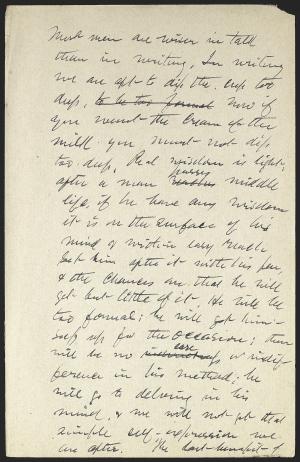 Most men are wiser in talk
than in writing. In writing
we are apt to dip the cup too
deep, to be too formal. Now if
you want the cream of the
milk you must not dip
too deep. Real wisdom is light;
after a man passes
middle
life, if he have any wisdom
it is on the surface of his
mind & within easy reach
Set him after it with his pen,
& the chances are that he will
get but little of it. He will be
too formal; he will get him-
self up for the occasion; there
will be no ease
or indif-
ference in his method; he
will go to delving in his
mind, & we will not get that
simple self-expression we
are after. The last benefit of